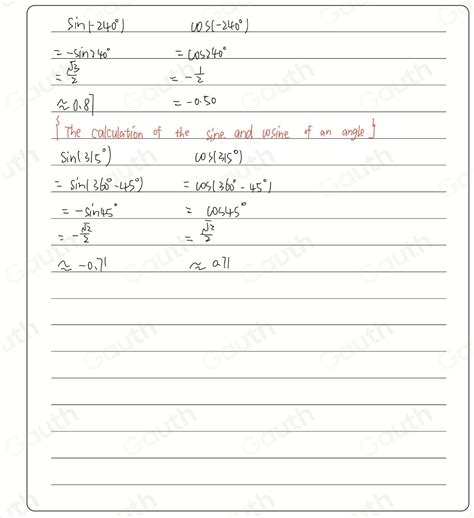 sin(-240°) cos(-240°)
= -sin240° = cos240°
= √3/2 = -1/2
≈ 0.87 = -0.50
[The calculation of the sine and cosine of an angle]
sin(315°) cos(315°)
= sin(360°-45°) = cos(360°-45°)
= -sin45° = cos45°
= -√2/2 = √2/2
≈ -0.71 ≈ 0.71
Gauth